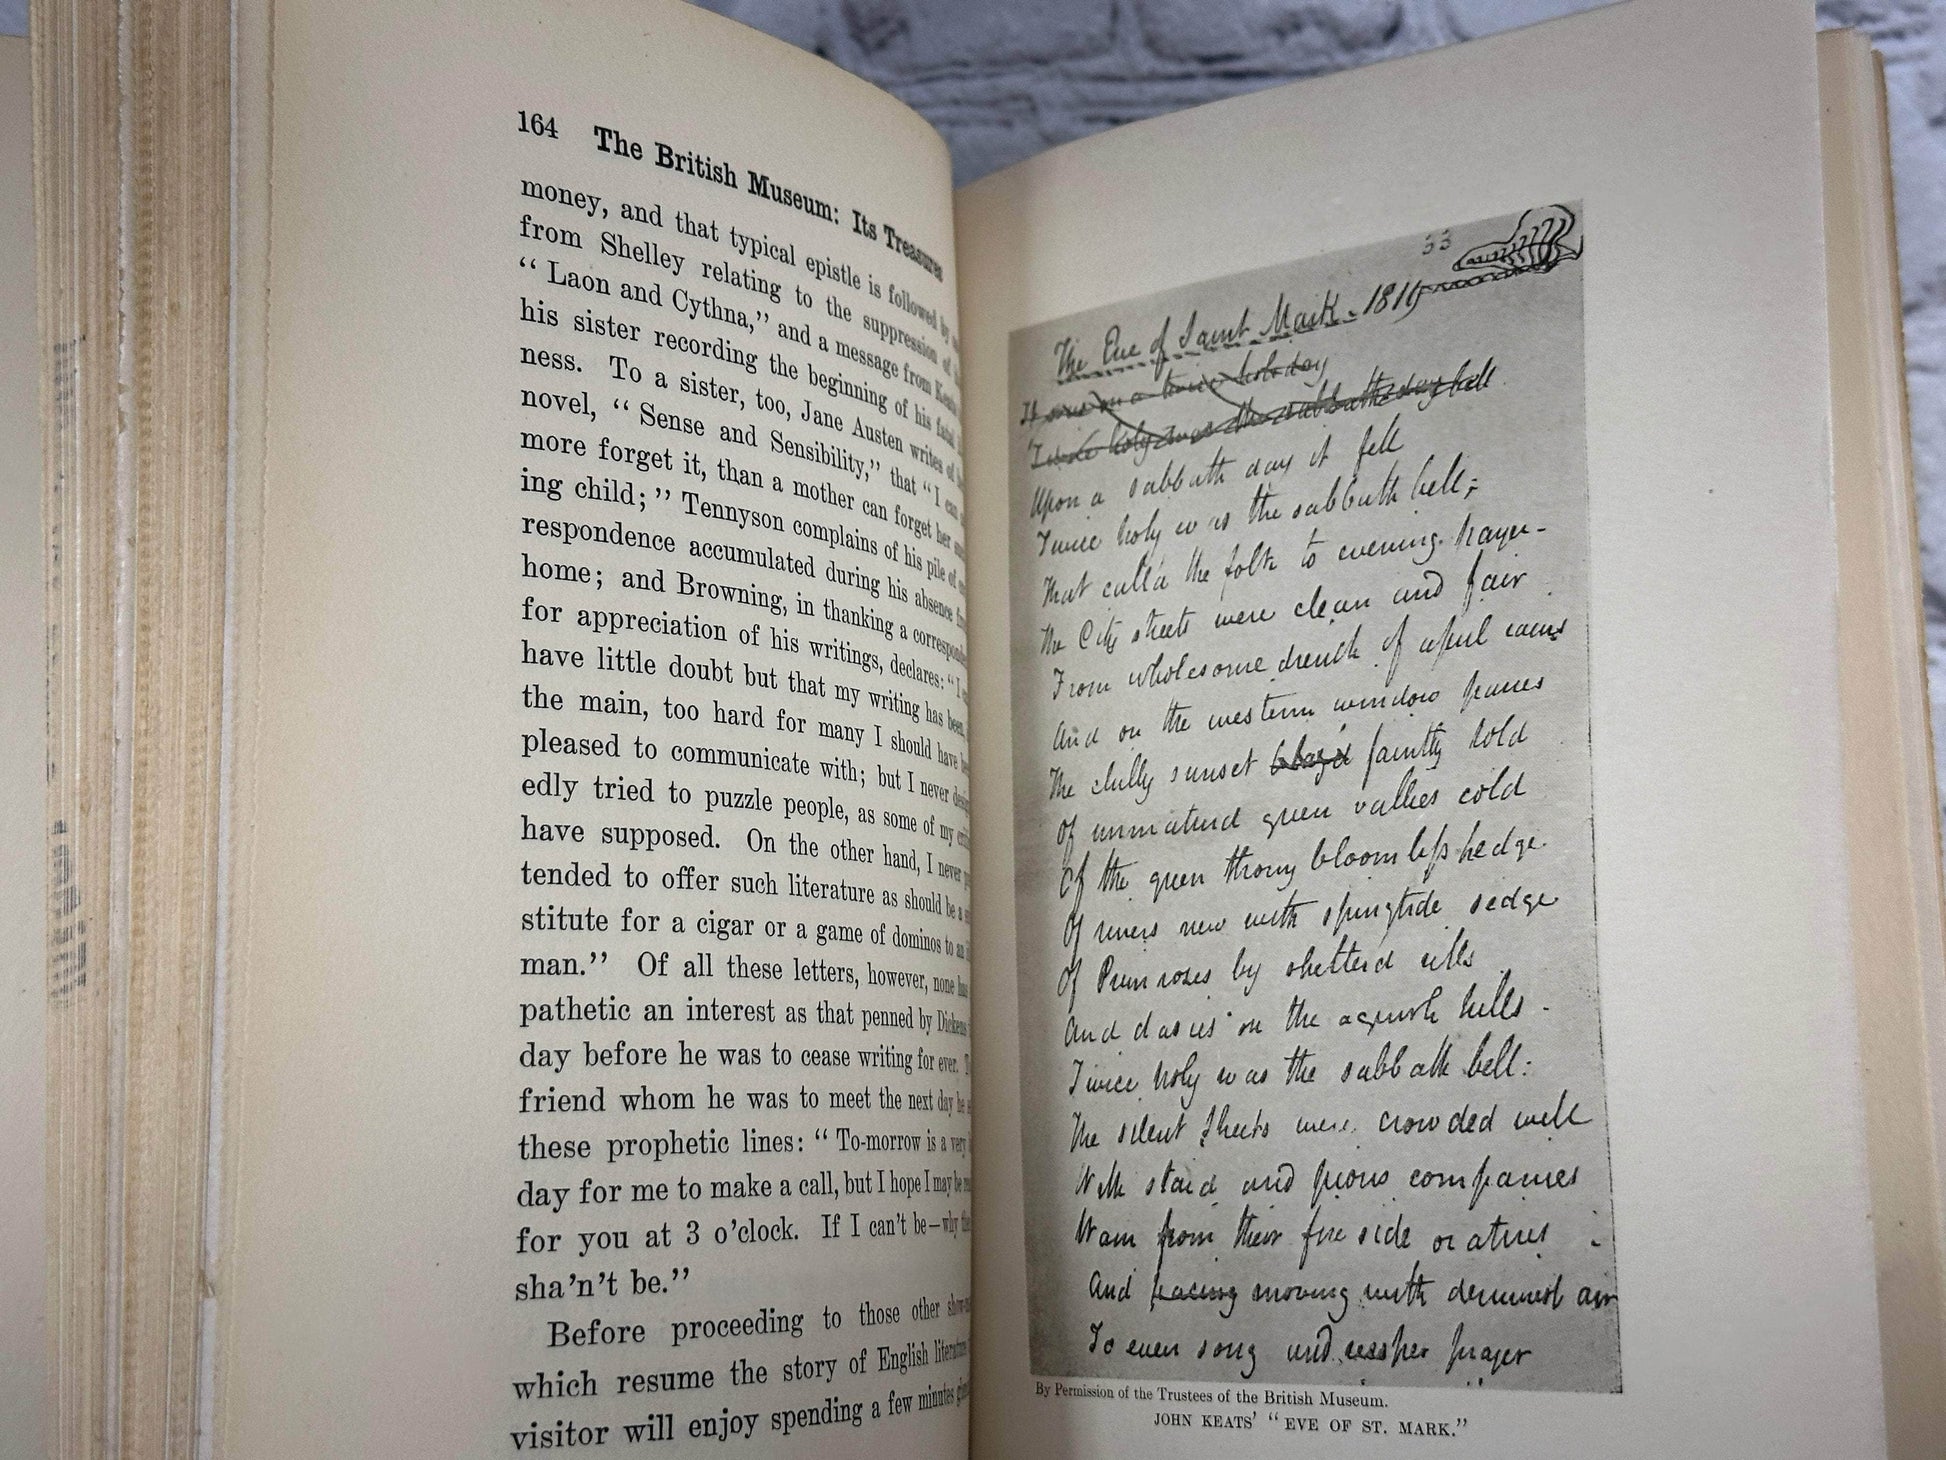 164 The British Museum: Its Treasures
money, and that typical epistle is followed by
from Shelley relating to the suppression of
“ Laon and Cythna,” and a message from Keats
his sister recording the beginning of his fatal
ness. To a sister, too, Jane Austen writes of
novel, “ Sense and Sensibility,” that “ I can
more forget it, than a mother can forget her
ing child; ” Tennyson complains of his pile of
respondence accumulated during his absence
home; and Browning, in thanking a
for appreciation of his writings, declares: “ I
have little doubt but that my writing has been,
the main, too hard for many I should have
pleased to communicate with; but I never
edly tried to puzzle people, as some of my
have supposed. On the other hand, I never
tended to offer such literature as should be a
stitute for a cigar or a game of dominos to an
man.” Of all these letters, however, none has
pathetic an interest as that penned by Dickens
day before he was to cease writing for ever.
friend whom he was to meet the next day he
these prophetic lines: “ To-morrow is a very
day for me to make a call, but I hope I may be
for you at 3 o’clock. If I can’t be—why
sha’n’t be.”
Before proceeding to those other
which resume the story of English
visitor will enjoy spending a few minutes
33
The Eve of Saint Mark. 1819
It was on a twice holiday
Twice holy was the sabbath day bell
Upon a sabbath day it fell
Twice holy was the sabbath bell;
That call'd the folk to evening prayer-
The City streets were clean and fair
From wholesome drench of april rains
And on the western window panes
The chilly sunset blaz'd faintly told
Of unmatur'd green vallies cold
Of the green thorny bloomless hedge.
Of rivers new with springtide sedge
Of Primroses by shelter'd rills
And dasies on the aguish hills -
Twice holy was the sabbath bell:
The silent streets were crowded well
With staid and pious companies
Warm from their fire side oratries
And pacing moving with demurest air
To even song and vesper prayer
By Permission of the Trustees of the British Museum.
JOHN KEATS’ “ EVE OF ST. MARK.”